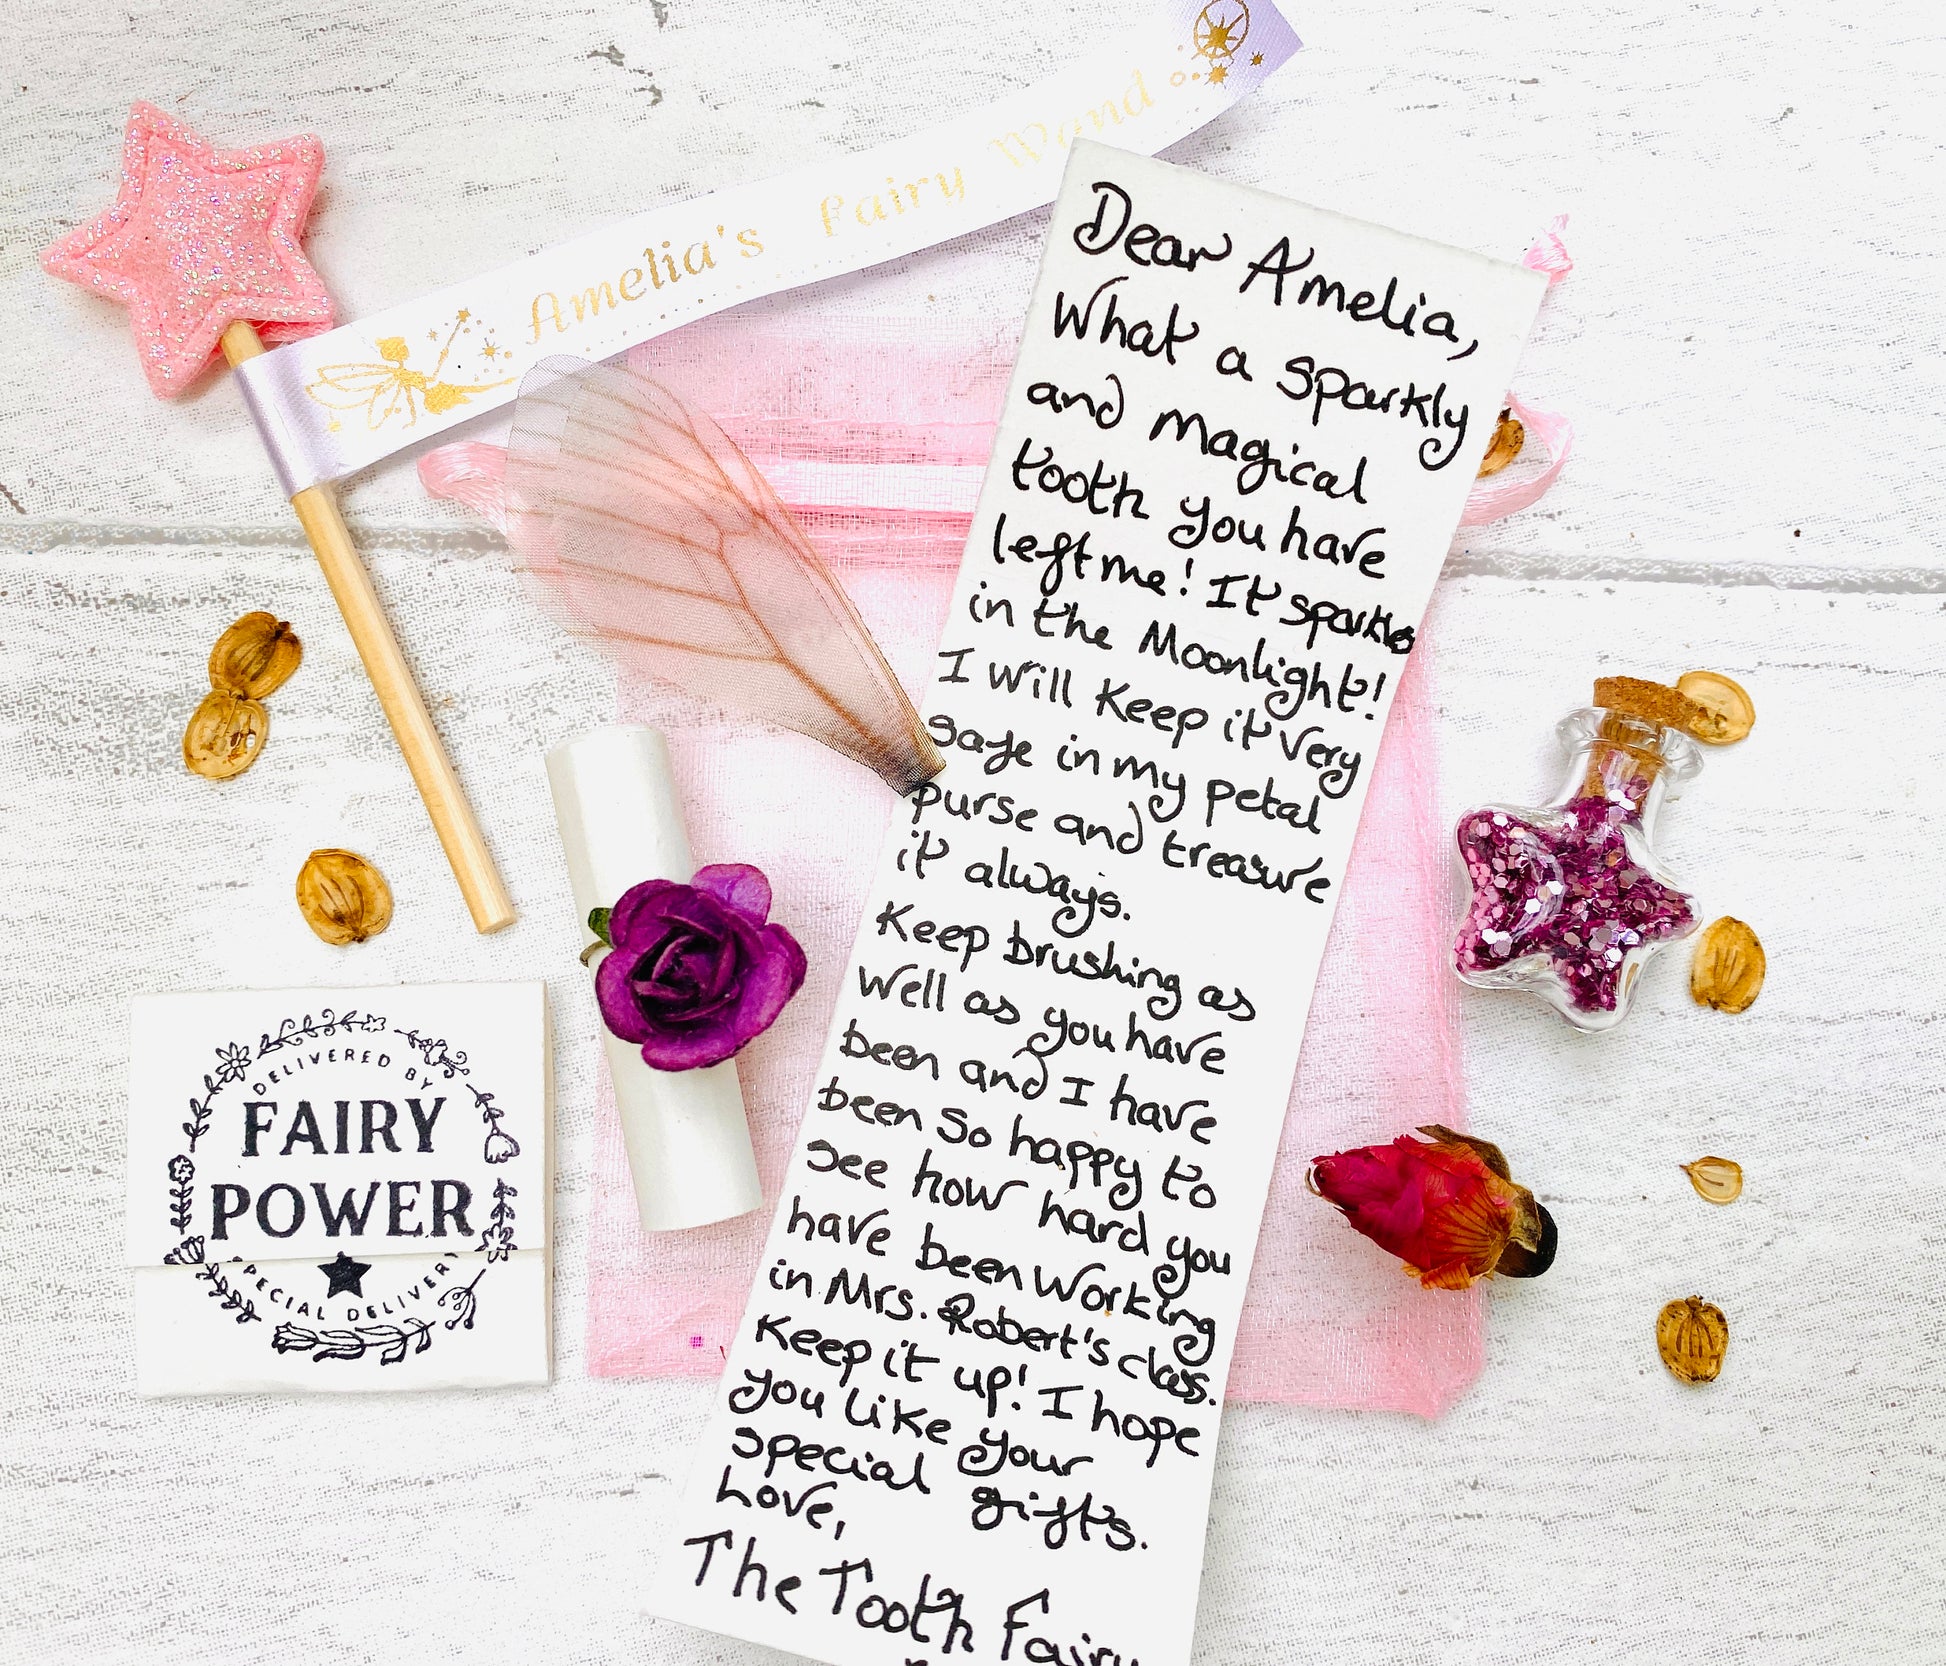 Amelia's Fairy Wand
Dear Amelia,
What a sparkly
and magical
tooth you have
left me! It sparkles
in the Moonlight!
I will keep it very
safe in my petal
purse and treasure
it always.
Keep brushing as
well as you have
been and I have
been so happy to
see how hard you
have been working
in Mrs. Robert's class.
Keep it up! I hope
you like your
special gifts.
Love,
The Tooth Fairy
DELIVERED BY
FAIRY
POWER
SPECIAL DELIVERY